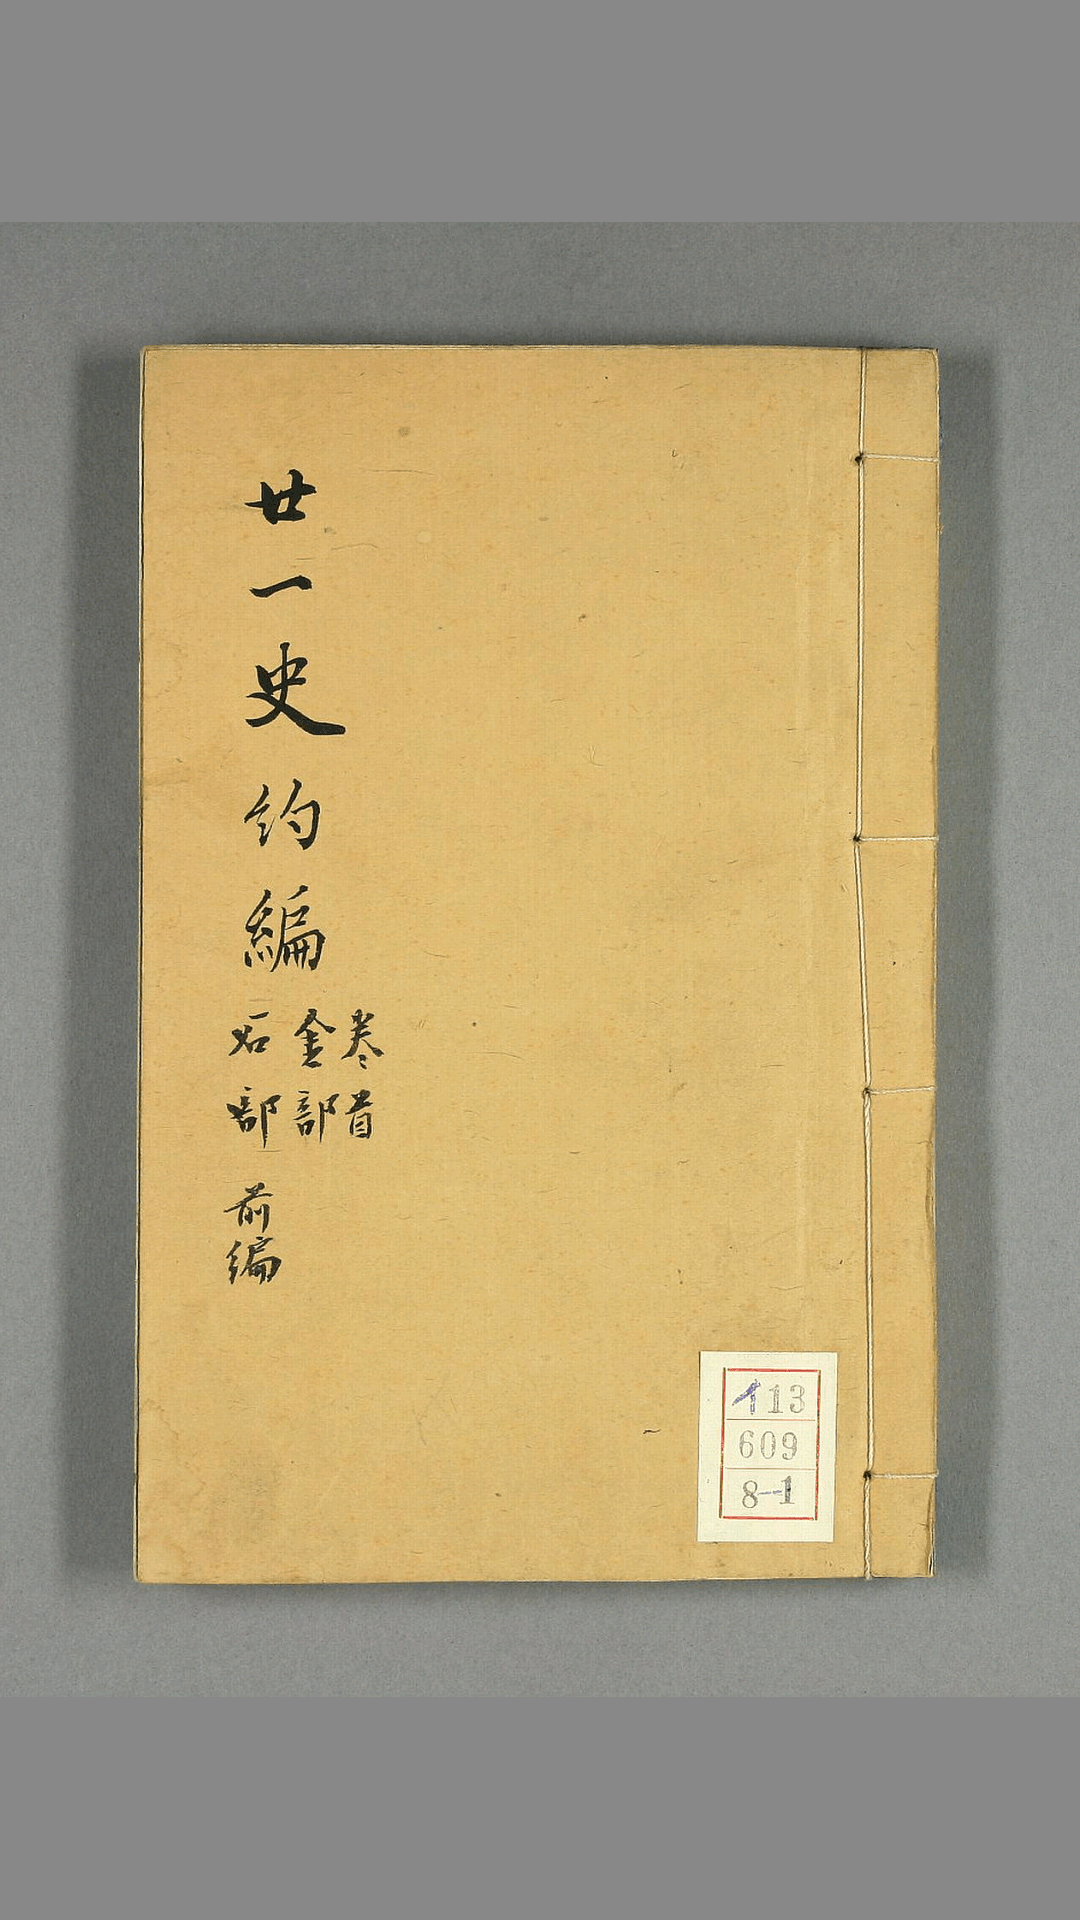 廿一史約編
卷首
金部
石部
前編
113
609
8-1